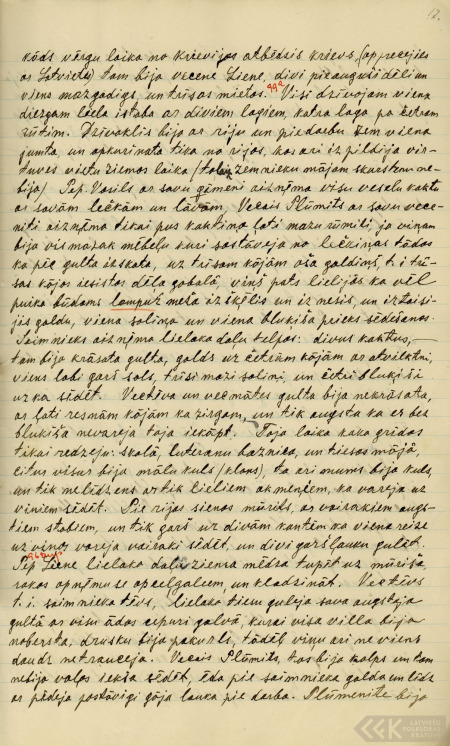 12.
kāds vērgu laika no Krievijas atbēdsis krievs, (apprecējies
ar Latvieti) tam bija vecene Liene, divi pieauguši dēli un
viens mazgadīgs, un trīsas meitas. Viši dzīvojam viena
diezgan liela istaba ar diviem logiem, katra loga pa četram
rūtim. Dzīvoklis bij ar riju un piedarbu zem viena
jumta, un apkurinata tika no rijas, kas ari izpildija vir-
tuves vietu ziemas laika (toleiz zemnieku mājam skursteni ne-
bija) Pēp. Vasils ar savu ģimeni aizņēma visu veselu kaktu
ar savām leckām un lāvām, Vecais Plūmīts ar savu vece-
nīti aizņēma tikai pus kaktiņa ļoti mazu rūmīti, jo viņam
bija vismazak mēbeļu kuri sastāveja no leckiņas tādas
ka pēc gulta izskata, uz trīsam kājām oša galdiņš t. i trī-
sas kājas iesistas dēļa gabalā, viņš pats lielijās ka vēl
puika būdams lamput meža izskēlis un iznesis, un iztaisi-
jis galdu, viena soliņa un viena blukiša prieks sēdešanas.
Saimnieks aizņēma lielaka daļu telpas: divus kaktus, —
tam bija krāsata gulta, galds uz četrām kājām ar atvilktni,
viens labi garš sols, trīsi mazi soliņi, un četri blukiši
uz ka sēdēt. Vectēva un vecmātes gulta bija nekrāsata,
ar ļati resnām kājām ka zirgam, un tik augsta ka es bez
blukiša nevareja toja iekāpt. Toja laika koka grīdas
tikai redzeju: skolā, luterāņu baznica, un tiesas mājā,
citus visur bija mālu kuls (klons), ta ari mums bija kuls,
un tik nelīdzens ar tik lieliem akmeņiem, ka vareja uz
viņiem sēdēt. Pie rijas sienas mūrīts, ar vairakiem augs-
tiem stabiem, un tik garš uz divām kantēm ka viena reize
uz viņas vareja vairaki sēdēt, un divi garšļauku gulēt.
Pēp Liene lielako daļu ziema mēdza tupēt uz mūriša,
rokas apņēmuse ap ceļgaleem, un kladzināt. Vectēvs
t. i. saimnieka tēvs, lielako tiesu guleja sava augstaja
gultā ar visu ādas cepuri galvā, kurai visa villa bija
nobersta, drusku bija pakurls, tādēļ viņu ari neviens
daudz netrauceja. Vecais Plūmīts, kas bija kalps un kam
nebija vaļas iekša sēdēt, ēda pie saimnieka galda un līdz
ar pēdeja postāvigi gāja lauka pie darba. Plūmenite bija
LATVIEŠU FOLKLORAS KRĀTUVE